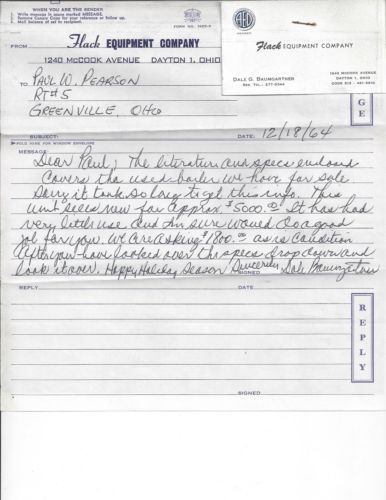 WHEN YOU ARE THE SENDER
Write message in space marked MESSAGE.
Remove Canary Copy for your reference or follow up.
Mail balance of set to recipient.
FROM
Flack EQUIPMENT COMPANY
1240 McCOOK AVENUE DAYTON 1, OHIO
AED
Flack EQUIPMENT COMPANY
DALE G. BAUMGARTNER
RES. TEL.: 277-0344
1240 McCOOK AVENUE
DAYTON 1, OHIO
TO
PAUL W. PEARSON
RT #5
GREENVILLE, OHIO
G
E
SUBJECT:
DATE: 12/18/64
FOLD HERE FOR WINDOW ENVELOPE
MESSAGE
Dear Paul; The literature and specs enclosed
covers the used boiler we have for sale
Sorry it took so long to get this info. This
unit sells new for approx. $5000.00 It has had
very little use and Im sure would do a good
job for you. We are asking $1800.00 as is condition
After you have looked over the specs drop down and
look it over. Happy Holiday Season Sincerely Dale Baumgartner
SIGNED
REPLY
DATE
REPLY
SIGNED